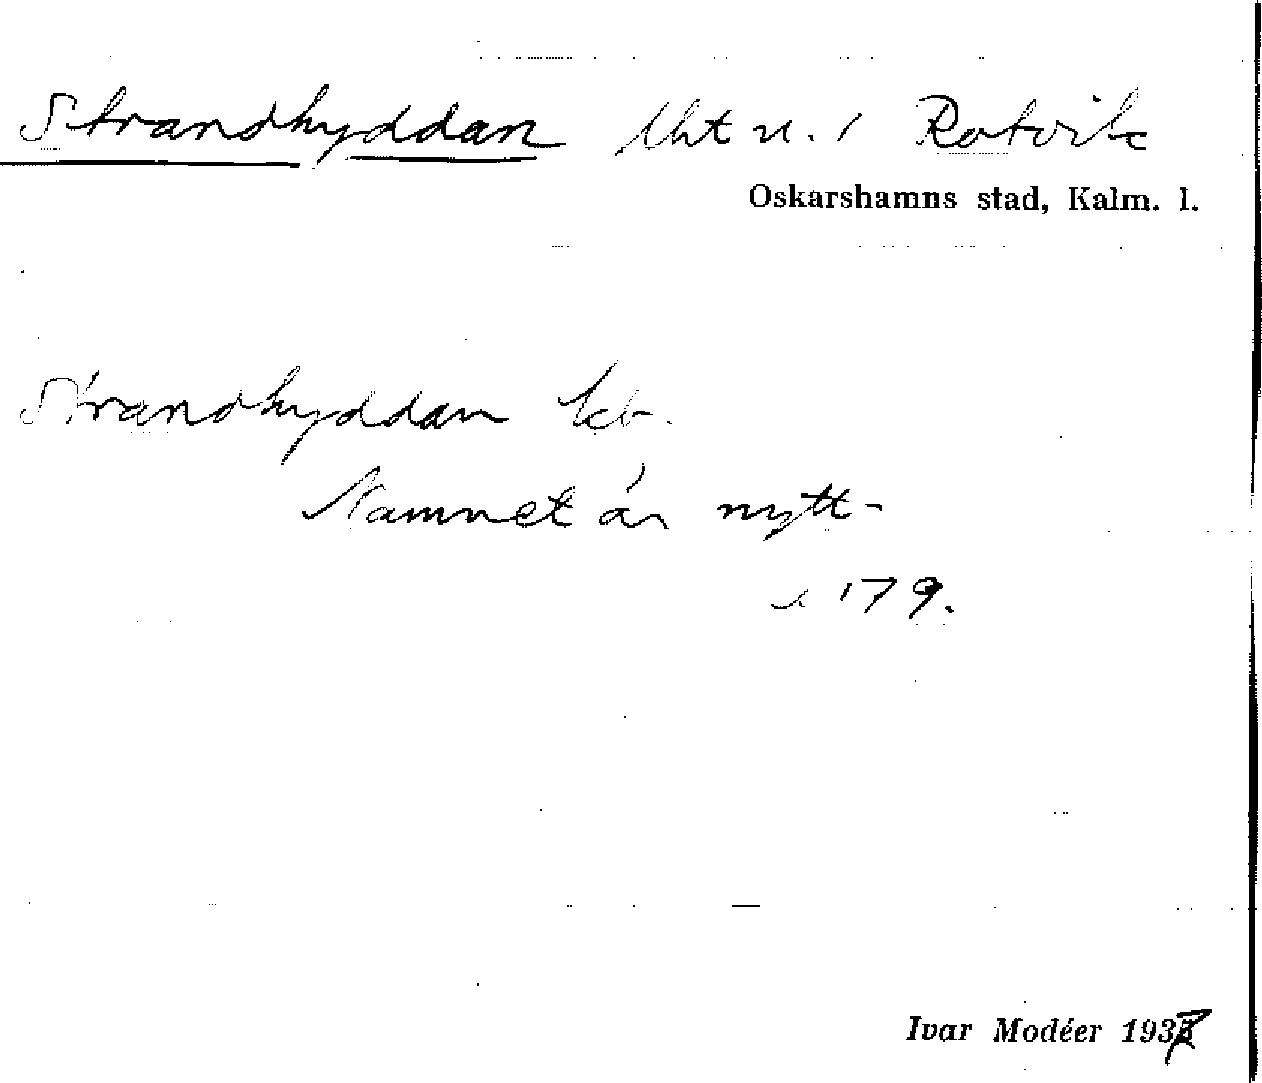 Strandhyddan lht u. / Rotvik
Oskarshamns stad, Kalm. l.
Strandhyddan
Namnet är nytt-
179.
Ivar Modéer 1937